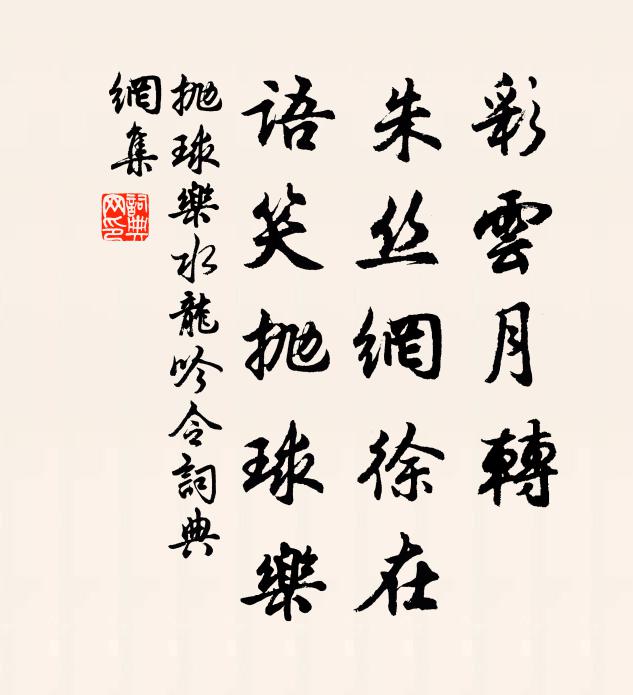 彩雲月轉
朱丝網徐在
語笑抛球樂
抛球樂水龍吟令詞典
網集
詞典网印